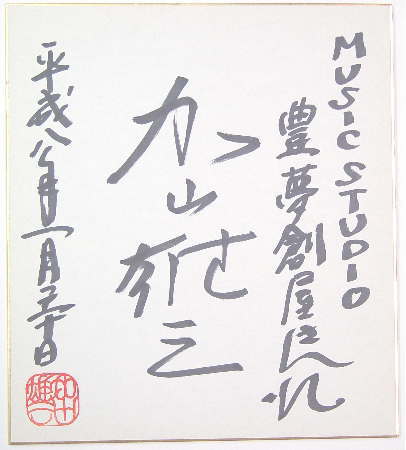 MUSIC STUDIO
豊夢創屋さん江
加山雄三
平成八年一月二十日